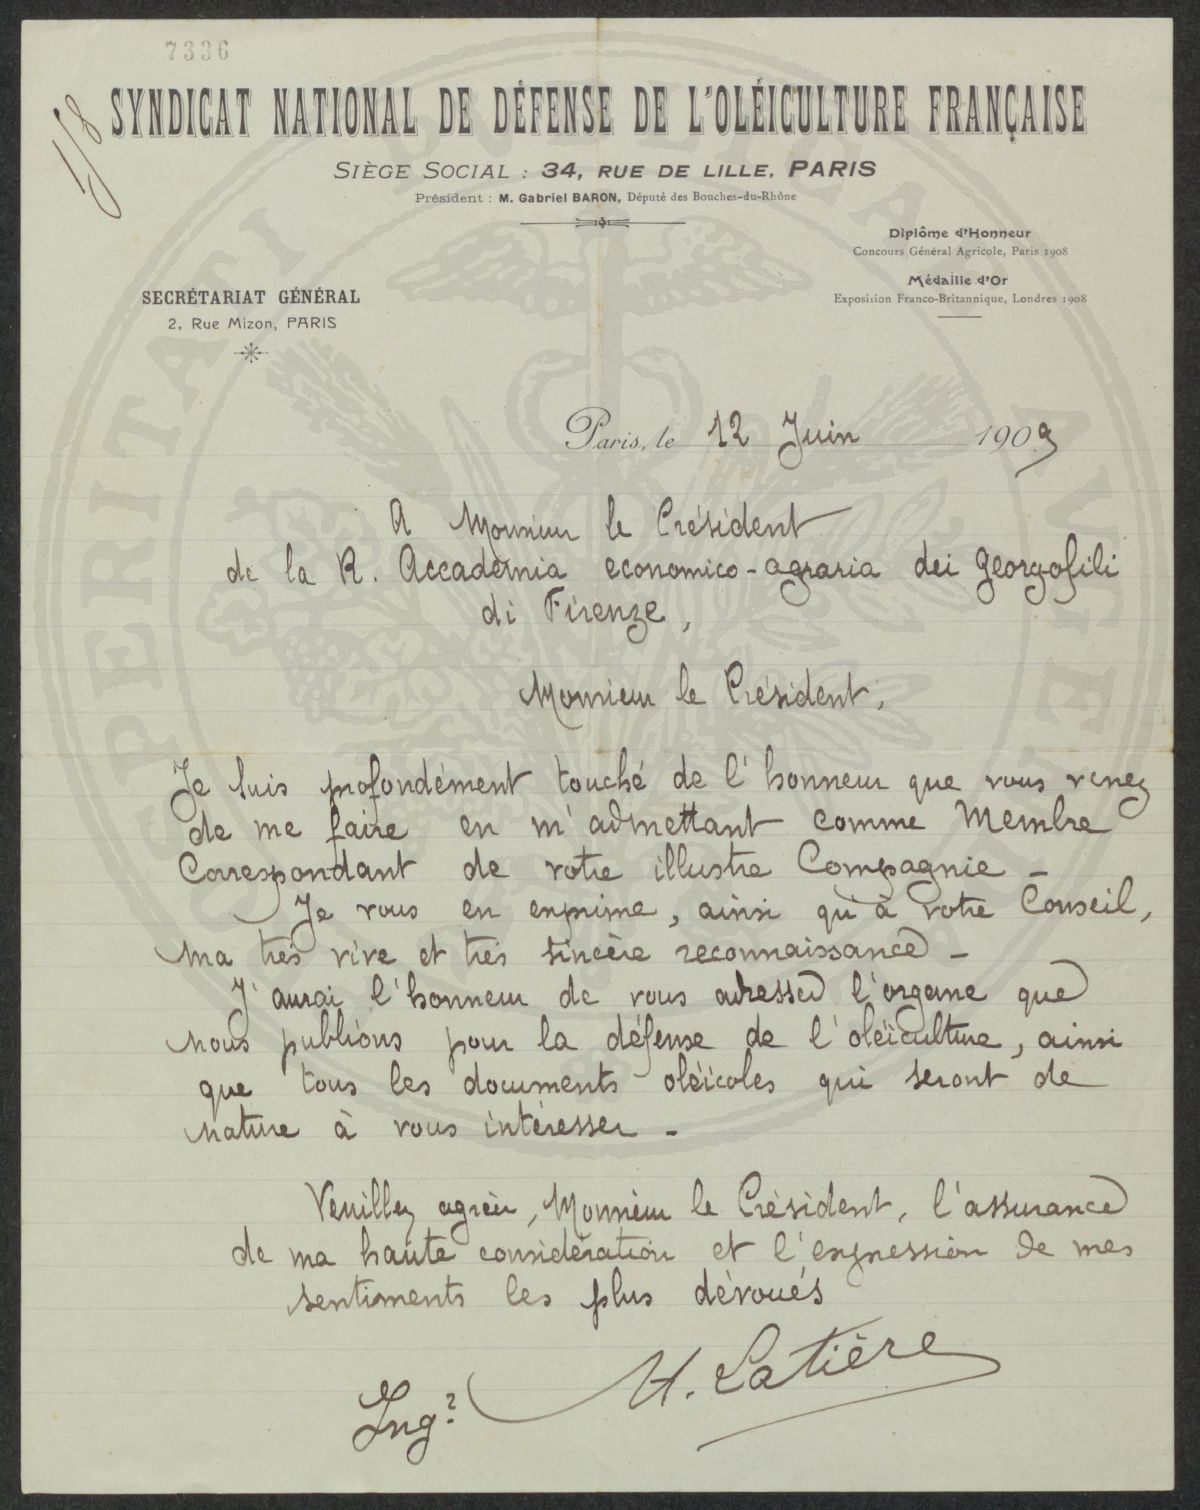 7336
1/8
SYNDICAT NATIONAL DE DÉFENSE DE L'OLÉICULTURE FRANÇAISE
SIÈGE SOCIAL : 34, RUE DE LILLE, PARIS
Président : M. Gabriel BARON, Député des Bouches-du-Rhône
Diplôme d'Honneur
Concours Général Agricole, Paris 1908
Médaille d'Or
Exposition Franco-Britannique, Londres 1908
SECRÉTARIAT GÉNÉRAL
2, Rue Mizon, PARIS
Paris, le 12 Juin 1909
A Monsieur le Président
de la R. Accademia economico-agraria dei Georgofili
di Firenze,
Monsieur le Président,
Je suis profondément touché de l'honneur que vous venez
de me faire en m'admettant comme Membre
Correspondant de votre illustre Compagnie -
Je vous en exprime, ainsi qu'à votre Conseil,
ma très vive et très sincère reconnaissance -
J'aurai l'honneur de vous adresser l'organe que
nous publions pour la défense de l'oléiculture, ainsi
que tous les documents oléicoles qui seront de
nature à vous intéresser -
Veuillez agréer, Monsieur le Président, l'assurance
de ma haute considération et l'expression de mes
sentiments les plus dévoués
H. Latière
Ingr
PROSPERITATI PUBLICAE AUGENDAE